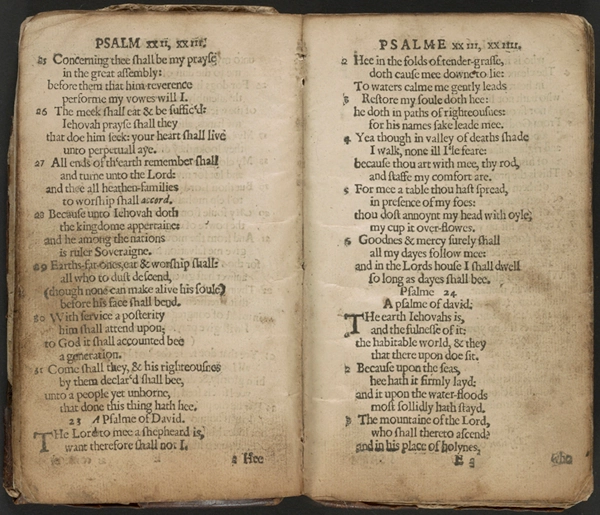 PSALM xxii, xxiii.
25 Concerning thee shall be my prayse
in the great assembly:
before them that him reverence
performe my vowes will I.
26 The meek shall eat & be suffic'd:
Iehovah prayse shall they
that doe him seek: your heart shall live
unto perpetuall aye.
27 All ends of th'earth remember shall
and turne unto the Lord:
and thee all heathen-families
to worship shall accord.
28 Because unto Iehovah doth
the kingdome appertaine:
and he among the nations
is ruler Soveraigne.
29 Earths-fat-ones, eat & worship shall:
all who to dust descend,
(though none can make alive his soule)
before his face shall bend.
30 With service a posterity
him shall attend upon;
to God it shall accounted bee
a generation.
31 Come shall they, & his righteousnes
by them declar'd shall bee,
unto a people yet unborne,
that done this thing hath hee.
23 A Psalme of David.
THe Lord to mee a shepheard is,
want therefore shall not I.
2 Hee
PSALME xxiii, xxiiii.
2 Hee in the folds of tender-grasse,
doth cause mee downe to lie:
To waters calme me gently leads
3 Restore my soule doth hee:
he doth in paths of righteousnes:
for his names sake leade mee.
4 Yea though in valley of deaths shade
I walk, none ill I'le feare:
because thou art with mee, thy rod,
and staffe my comfort are.
5 For mee a table thou hast spread,
in presence of my foes:
thou dost annoynt my head with oyle,
my cup it over-flowes.
6 Goodnes & mercy surely shall
all my dayes follow mee:
and in the Lords house I shall dwell
so long as dayes shall bee.
Psalme 24
A psalme of david.
THe earth Iehovahs is,
and the fulnesse of it:
the habitable world, & they
that there upon doe sit.
2 Because upon the seas,
hee hath it firmly layd:
and it upon the water-floods
most sollidly hath stayd.
3 The mountaine of the Lord,
who shall thereto ascend?
and in his place of holynes,
E 3 who